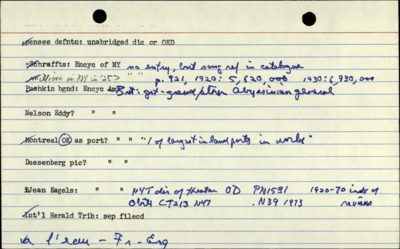 ensee defntn: unabridged dic or OED
Schraffts: Encyc of NY no entry, but song ref in catalogue
millions in NY in '25? p. 921, 1920: 5,620,000 1930: 6,930,000
Pushkin bgnd: Encyc Brit: grt-grandson Abyssinian general
Nelson Eddy? " "
Montreal OK as port? " " "1 of largest inland ports in world"
Duesenberg pic? " "
Jean Eagels: " " NYT dir of theater OD PN1581 1920-70 inds of
Obits CT213 NY7 .N39 1973 reviews
Int'l Herald Trib: sep filecd
à l'eau - Fr-Eng